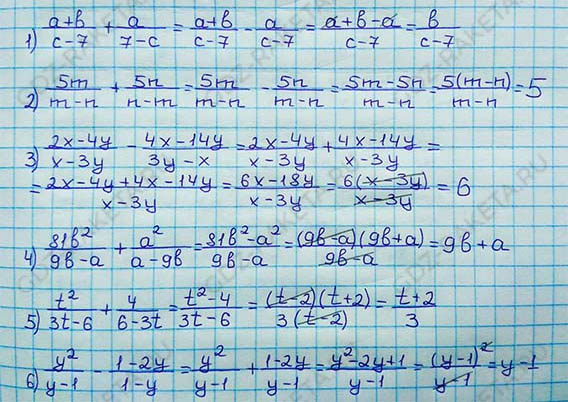 1) (a+b)/(c-7) + a/(7-c) = (a+b)/(c-7) - a/(c-7) = (a+b-a)/(c-7) = b/(c-7)
2) 5m/(m-n) + 5n/(n-m) = 5m/(m-n) - 5n/(m-n) = (5m-5n)/(m-n) = 5(m-n)/(m-n) = 5
3) (2x-4y)/(x-3y) - (4x-14y)/(3y-x) = (2x-4y)/(x-3y) + (4x-14y)/(x-3y) =
= (2x-4y+4x-14y)/(x-3y) = (6x-18y)/(x-3y) = 6(x-3y)/(x-3y) = 6
4) 81b²/(9b-a) + a²/(a-9b) = (81b²-a²)/(9b-a) = (9b-a)(9b+a)/(9b-a) = 9b+a
5) t²/(3t-6) + 4/(6-3t) = (t²-4)/(3t-6) = (t-2)(t+2)/3(t-2) = (t+2)/3
6) y²/(y-1) - (1-2y)/(1-y) = y²/(y-1) + (1-2y)/(y-1) = (y²-2y+1)/(y-1) = (y-1)²/(y-1) = y-1